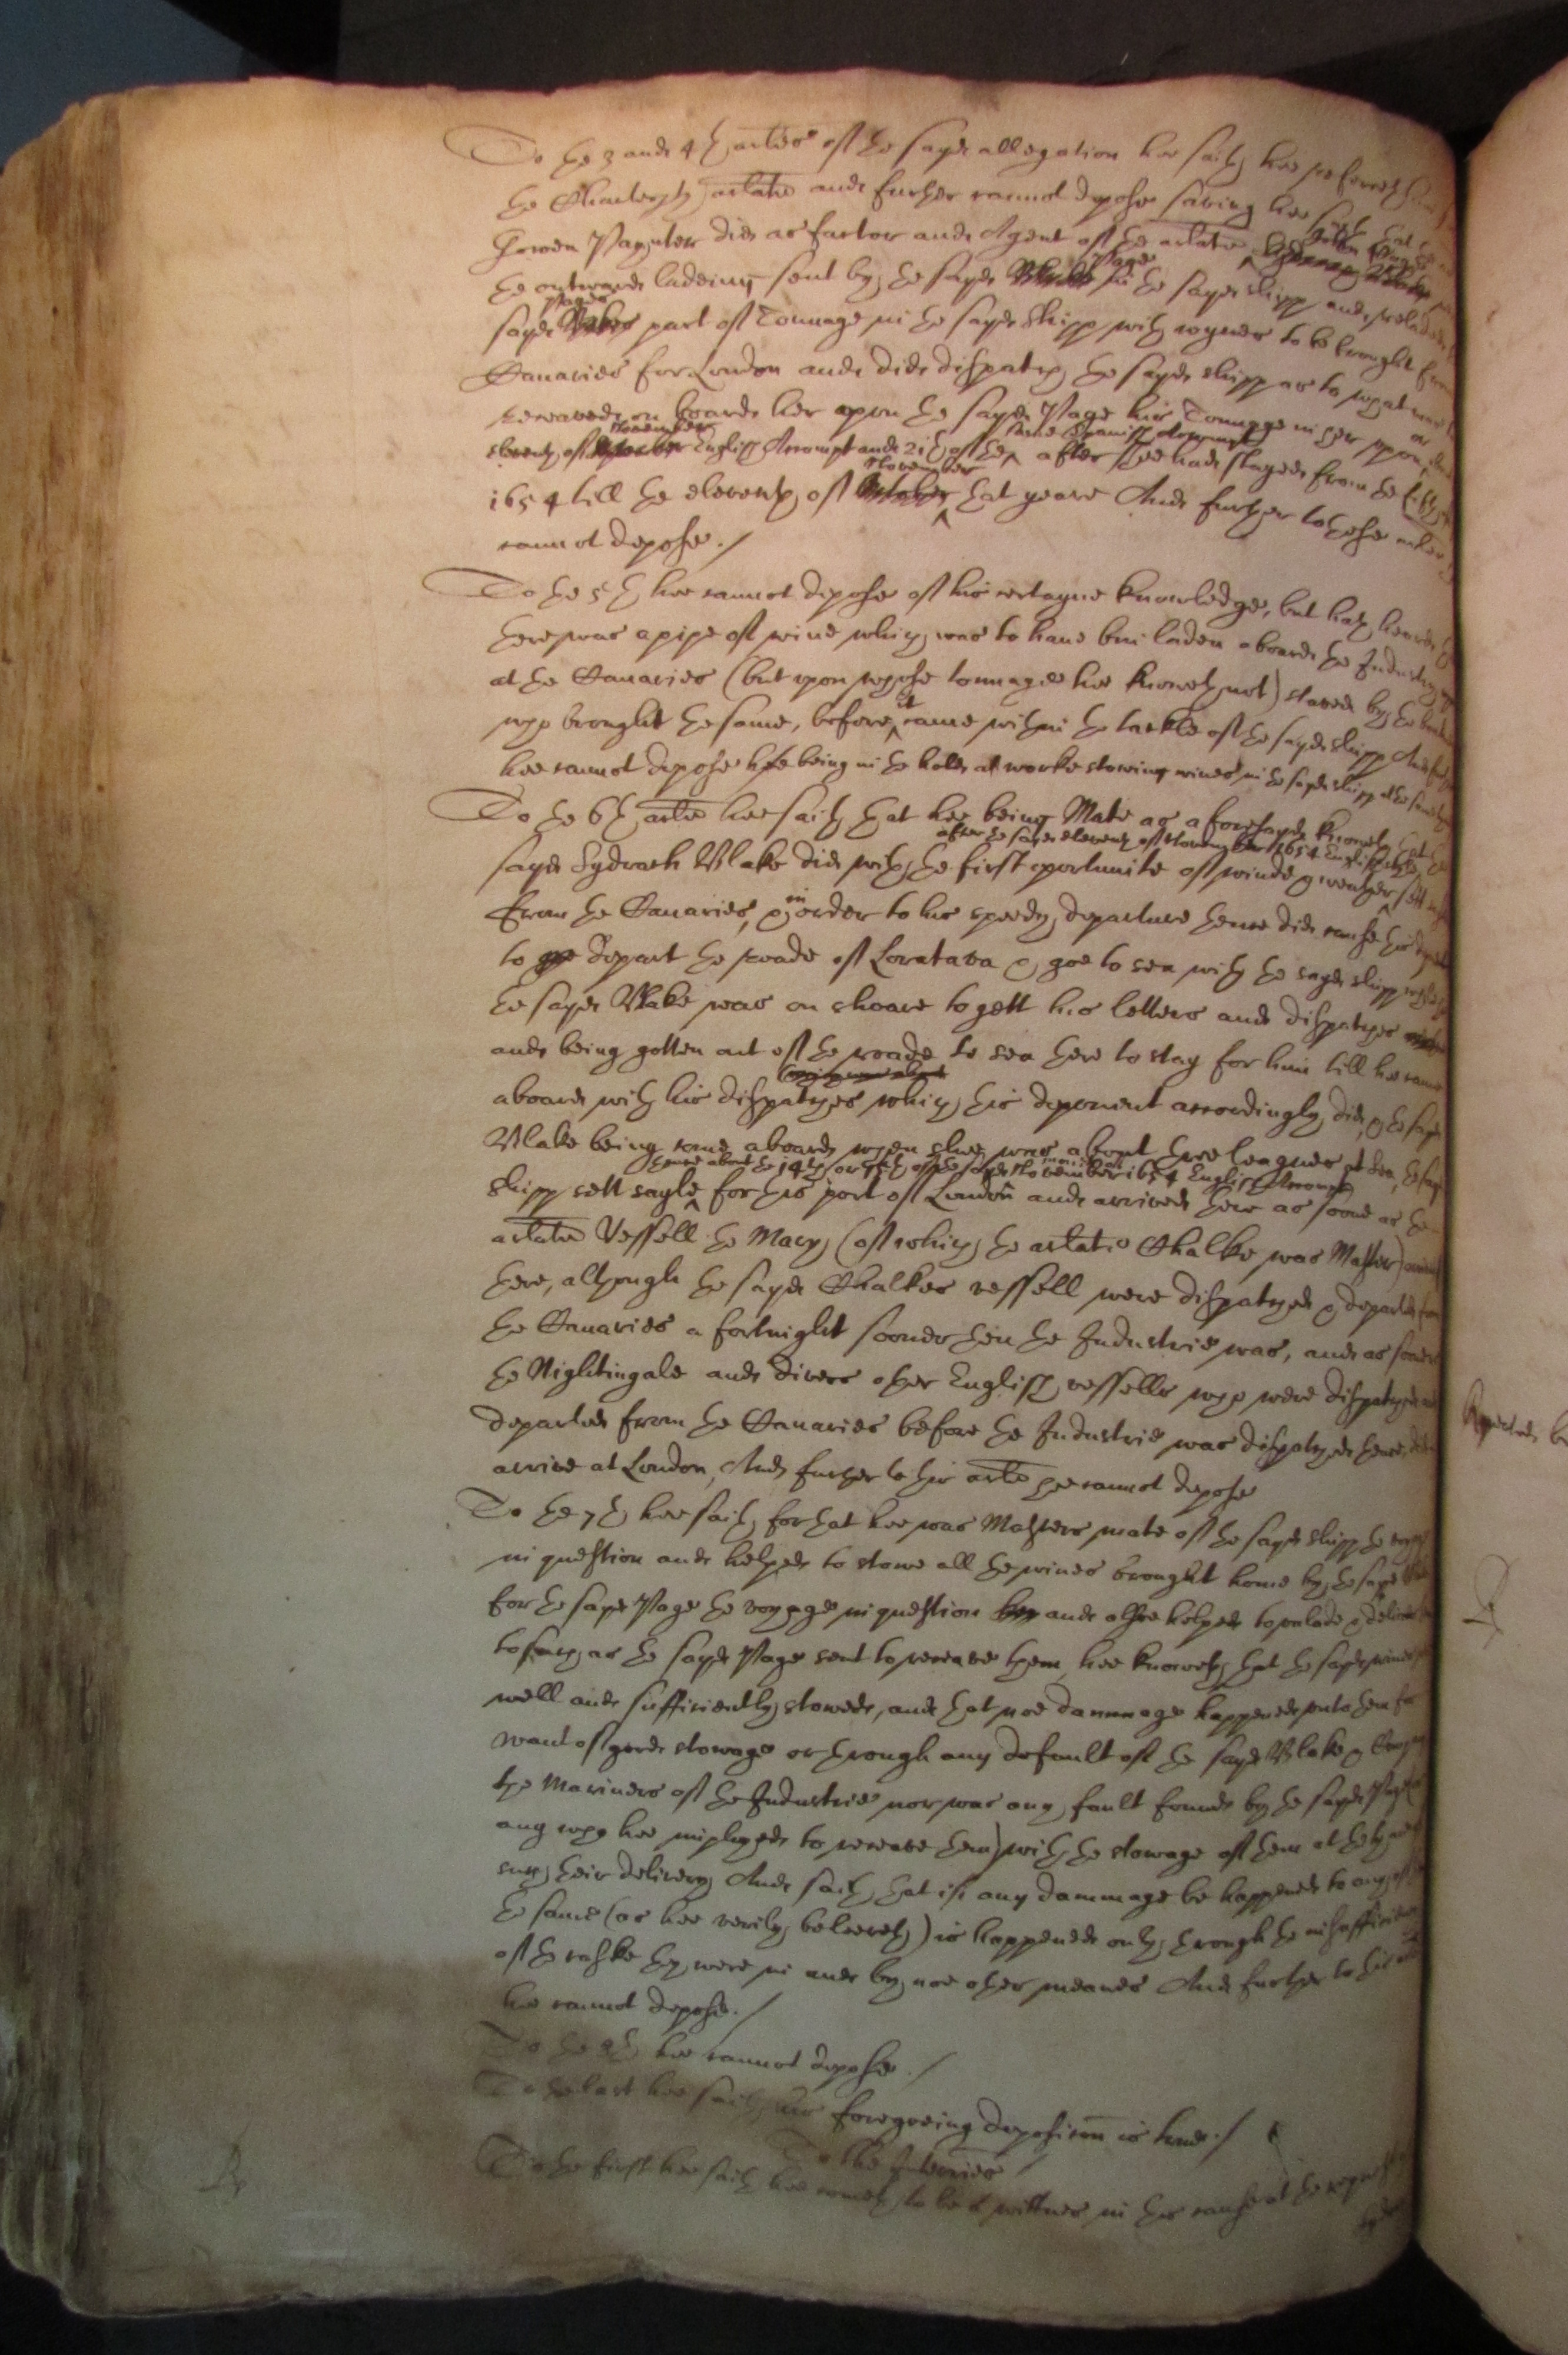 To the 3 and 4th arlates of the sayd allegation hee saith hee referreth him
the Charterpty arlate and further cannot depose saving hee saith that the
Gowen Paynter did as factor and Agent of the arlate John Page
the outward ladeing sent by the sayd Page in the sayd shipp and relade
sayd Pages part of Tonnage in the sayd shipp with wynes to be brought from
Canaries for London and did dispatch the sayd shipp as to what was to
receaved on board her upon the sayd Page his Tonnage in her upon or
eleventh of November English Accompt and 21th of the same Spanish Accompt after shee had stayed from the
1654 till the eleventh of November that yeare And further to these arles
cannot depose./
To the 5th hee cannot depose of his certayne knowledge, but hath heard
there was a pipe of wine which was to have bin laden aboard the Industry
at the Canaries (but upon whose tonnage hee knoweth not) staved by the
who brought the same, before it came within the tackle of the sayd shipp And further
hee cannot depose hee being in the hold at worke stowing wines in the sayd shipp at the same
To the 6th arlate hee saith that hee being Mate as aforesayd knoweth that the
sayd Sydrach Blake did with the first oportunitie of winde & weather after the sayd eleventh of November 1654 English stile sett
from the Canaries, & in order to his speedy departure thence did cause this
to depart the roade of Loratava & goe to sea with the sayd shipp whilest
the sayd Blake was on shoare to gett his letters and dispatches
and being gotten out of the roade to sea there to stay for him till hee came
aboard with his dispatches which this deponent accordingly did, & the sayd
Blake being come aboard when shee was about three leagues at sea, the sayd
shipp sett sayle thence about the 14th or 15th of the sayd November 1654 English Accompt for this port of London and arrived here as soone as the
arlate Vessell the Mary (of which the arlate Chalke was Master)
here, although the sayd Chalkes vessell were dispatched & departed from
the Canaries a fortnight sooner then the Industrie was, and as soone
the Nightingale and divers other English vessells who were dispatched
departed from the Canaries before the Industrie was dispatched thence did
arrive at London, And further to this arle hee cannot depose
To the 7th hee saith for that hee was Masters mate of the sayd shipp the voyage
in question and helped to stowe all the wines brought home by the sayd
for the sayd Page the voyage in question and alsoe helped to unlade & deliver
to such as the sayd Page sent to receave them, hee knoweth that the sayd wines
well and sufficiently stowed, and that noe dammage happened unto them for
want of good stowage or through any default of the sayd Blake &
the Mariners of the Industrie nor was any fault found by the sayd Page
any who hee imployed to receave them) with the stowage of them at the tyme
such their delivery And saith that if any dammage be happened to any of
the same (as hee verily beleeveth) is happened only through the insufficiencie
of the caske they were in and by noe other meanes And further to this
hee cannot depose./
To the 8th hee cannot depose./
To the last hee saith his foregoeing deposition is true./
To the Interries
To the first hee saith hee cometh to be a wittnes in this cause at the request